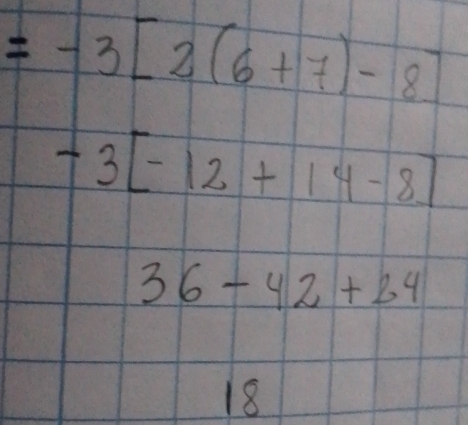 = -3[2(6+7)-8]
-3[-12+14-8]
36-42+24
18